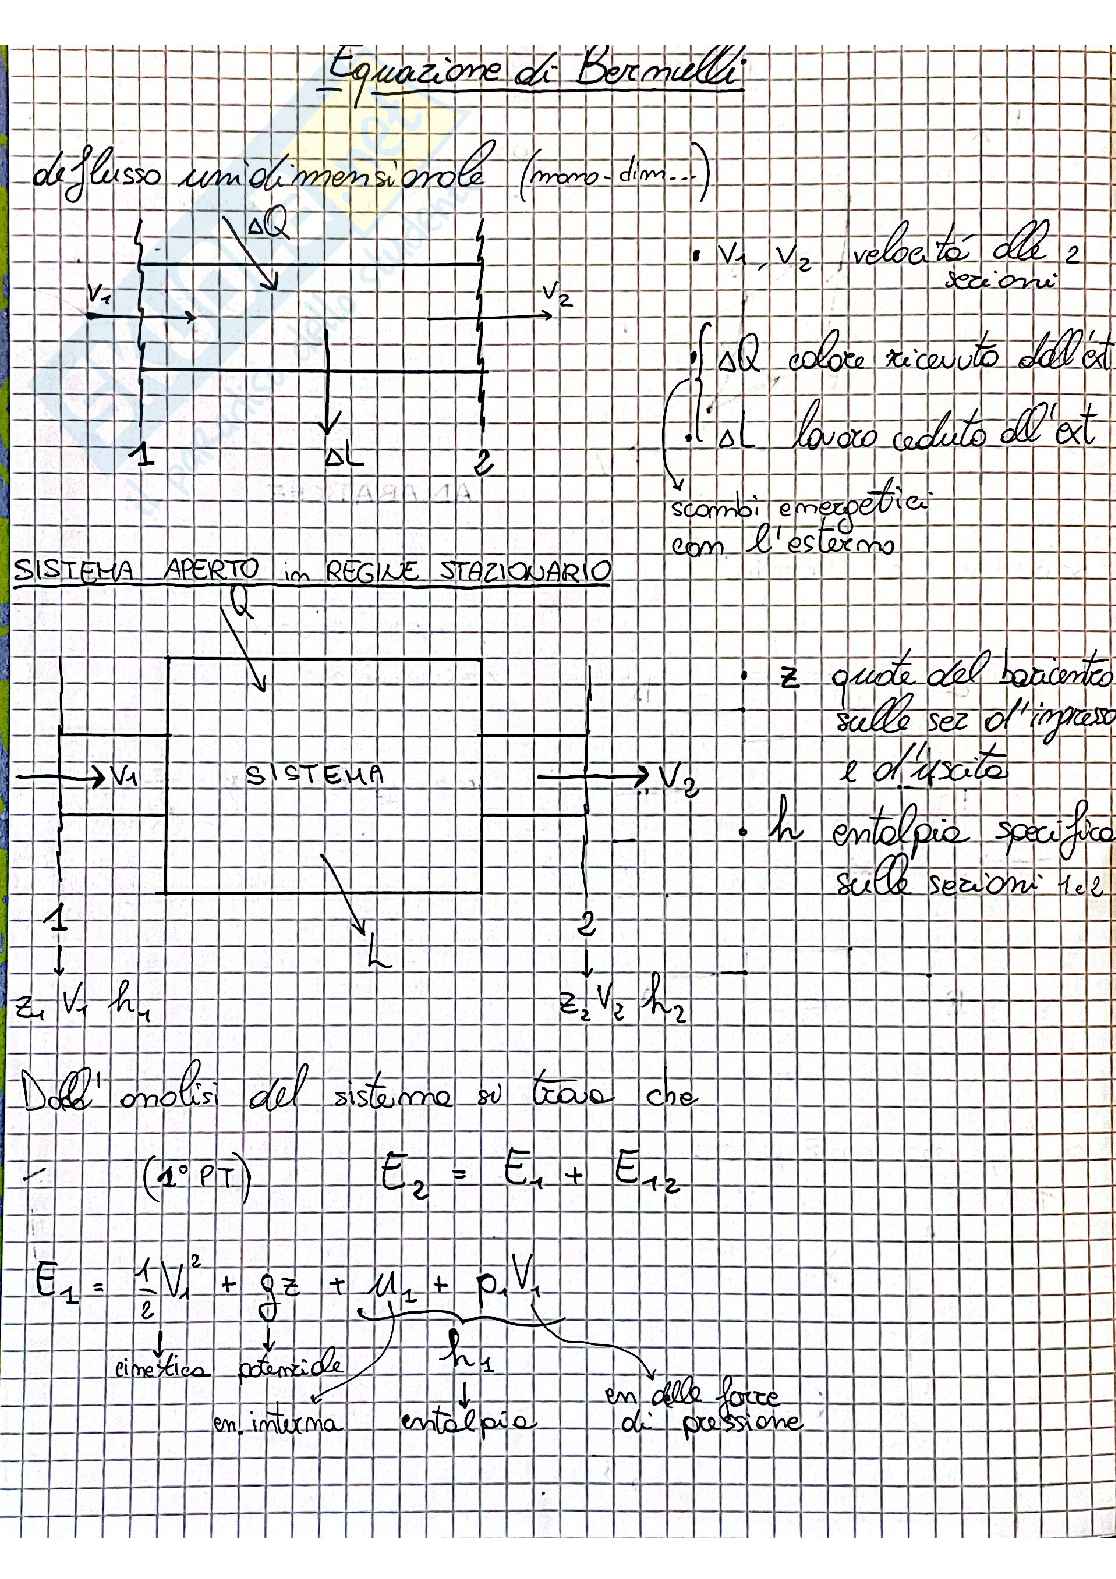 Equazione di Bernulli
deflusso unidimensionale (mono-dim...)
ΔQ
V₁
V₂
• V₁, V₂ velocità alle 2
sezioni
• ΔQ calore ricevuto dall'ext
• ΔL lavoro ceduto all'ext
1
ΔL
2
scambi energetici
con l'esterno
SISTEMA APERTO in REGIME STAZIONARIO
Q
• z quote del baricentro
sulle sez d'ingresso
e d'uscita
V₁
SISTEMA
V₂
• h entalpia specifica
sulle sezioni 1 e 2
1
2
L
z₁ V₁ h₁
z₂ V₂ h₂
Dall'analisi del sistema si trova che
(1° PT) E₂ = E₁ + E₁₂
E₁ = 1/2 V₁² + gz + u₁ + p₁V₁
cinetica potenziale
h₁
en. interna
entalpia
en. delle forze
di pressione